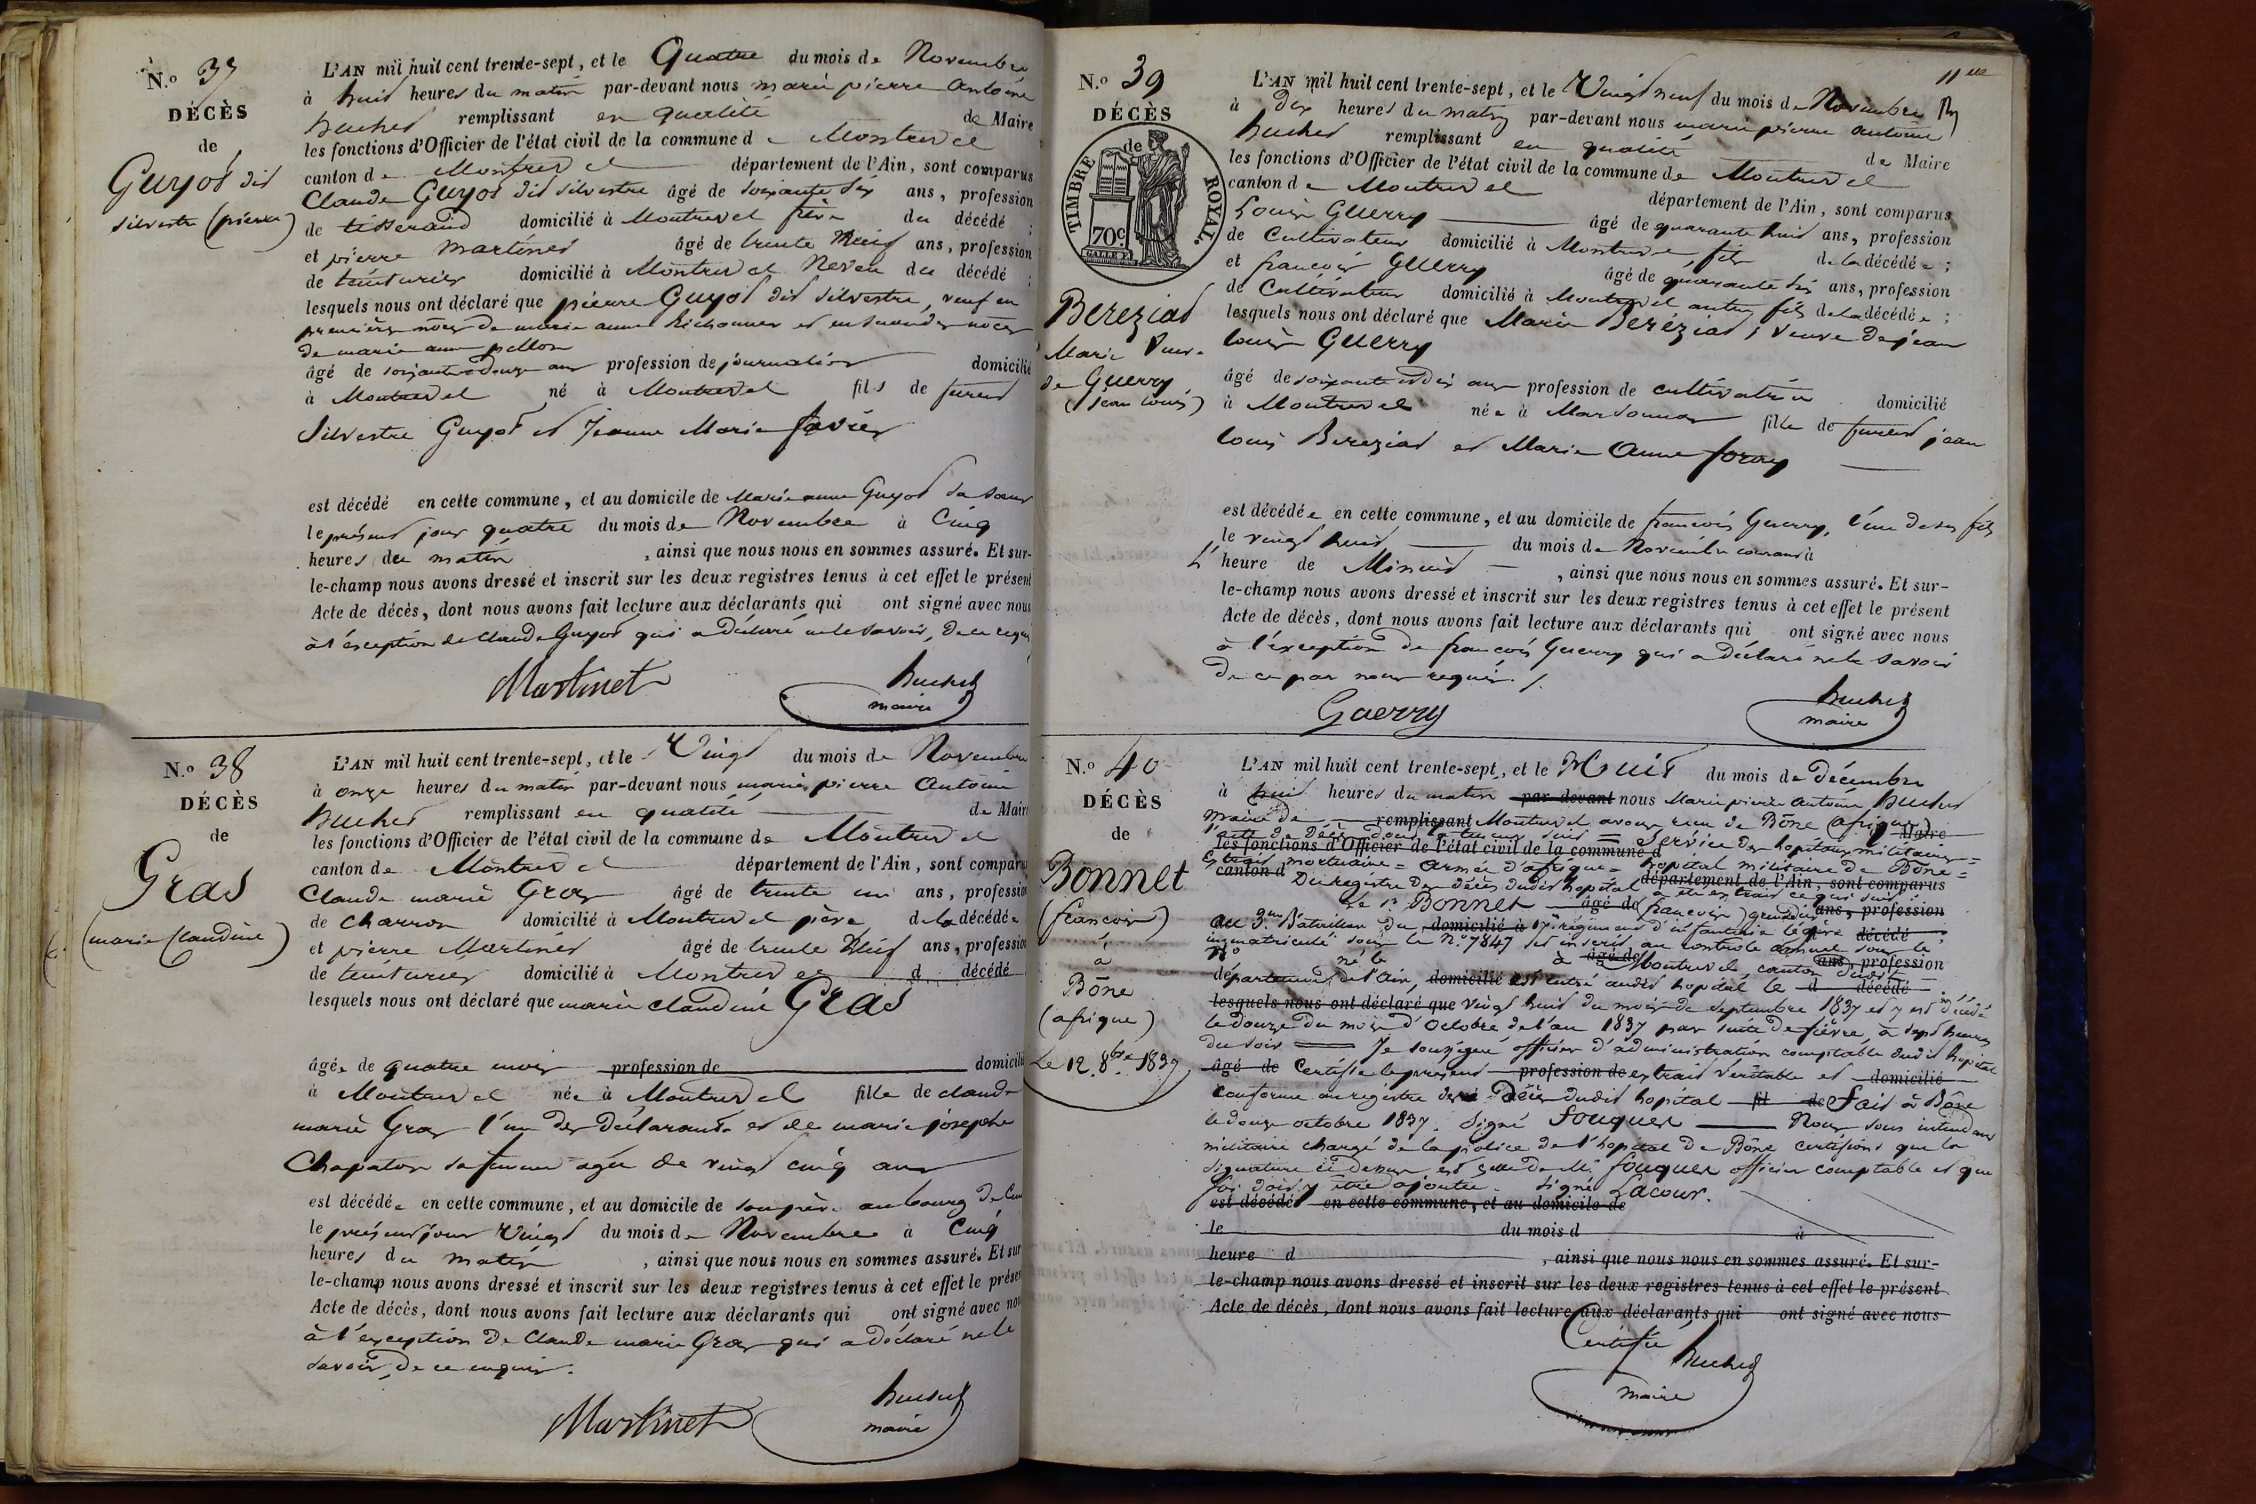 N.o 37
DÉCÈS
de
Guyot dit
silvestre (pierre)
L'AN mil huit cent trente-sept, et le Quatre du mois de Novembre
à huit heures du matin par-devant nous marie pierre antoine
huchet remplissant en qualité de Maire
les fonctions d'Officier de l'état civil de la commune de Montrevel
canton de Montrevel département de l'Ain, sont comparus
Claude Guyot dit silvestre âgé de soixante six ans, profession
de tisserand domicilié à Montrevel frère du décédé ;
et pierre martinet âgé de trente neuf ans, profession
de teinturier domicilié à Montrevel Neveu du décédé ;
lesquels nous ont déclaré que pierre Guyot dit silvestre, veuf en
premières noces de marie anne et en secondes noces
de marie anne pellon
âgé de soixante douze ans profession de journalier domicilié
à Montrevel né à Montrevel fils de furent
Silvestre Guyot et Jeanne Marie favier
est décédé en cette commune, et au domicile de Marie anne Guyot sa soeur
le présent jour quatre du mois de Novembre à Cinq
heures du matin , ainsi que nous nous en sommes assuré. Et sur-
le-champ nous avons dressé et inscrit sur les deux registres tenus à cet effet le présent
Acte de décès, dont nous avons fait lecture aux déclarants qui ont signé avec nous
à l'exception de Claude Guyot qui a déclaré ne le savoir, de ce requis
Martinet huchet
maire
N.o 38
DÉCÈS
de
Gras
(marie Claudine)
L'AN mil huit cent trente-sept, et le Vingt du mois de Novembre
à onze heures du matin par-devant nous marie pierre antoine
huchet remplissant en qualité de Maire
les fonctions d'Officier de l'état civil de la commune de Montrevel
canton de Montrevel département de l'Ain, sont comparus
Claude marie Gras âgé de trente un ans, profession
de charron domicilié à Montrevel père de la décédée
et pierre Martinet âgé de trente Neuf ans, profession
de teinturier domicilié à Montrevel d décédé
lesquels nous ont déclaré que marie claudine Gras
âgée de quatre mois profession de domicilié
à Montrevel née à Montrevel fille de claude
marie Gras l'un des déclarants et de marie josephe
Chapaton sa femme agée de vingt cinq ans
est décédée en cette commune, et au domicile de son père au bourg de
le présent jour Vingt du mois de Novembre à Cinq
heures du matin , ainsi que nous nous en sommes assuré. Et sur
le-champ nous avons dressé et inscrit sur les deux registres tenus à cet effet le présen
Acte de décès, dont nous avons fait lecture aux déclarants qui ont signé avec nou
à l'exception de Claude marie Gras qui a déclaré ne le
savoir, de ce enquis.
Martinet huchet
maire
11me
N.o 39
DÉCÈS
de
TIMBRE ROYAL.
70c.
Bereziat
Marie Veuve
de Guerry
(jean louis)
L'AN mil huit cent trente-sept, et le Vingt neuf du mois de Novembre
à dix heures du matin par-devant nous marie pierre antoine
huchet remplissant en qualité de Maire
les fonctions d'Officier de l'état civil de la commune de Montrevel
canton de Montrevel département de l'Ain, sont comparus
Louis Guerry âgé de quarante huit ans, profession
de Cultivateur domicilié à Montrevel fils de la décédée ;
et francois Guerry âgé de quarante six ans, profession
de Cultivateur domicilié à Montrevel autre fils de la décédée ;
lesquels nous ont déclaré que Marie Bereziat, veuve de jean
louis Guerry
âgé de soixante et dix ans profession de cultivatrice domicilié
à Montrevel née à Marsonnas fille de furent jean
louis Bereziat et Marie Anne foray
est décédée en cette commune, et au domicile de francois Guerry, l'un de ses fils
le vingt huit du mois de Novembre courant à
L' heure de Minuit , ainsi que nous nous en sommes assuré. Et sur-
le-champ nous avons dressé et inscrit sur les deux registres tenus à cet effet le présent
Acte de décès, dont nous avons fait lecture aux déclarants qui ont signé avec nous
à l'exception de francois Guerry qui a déclaré ne le savoir
de ce par nous requis. /.
Guerry huchet
maire
N.o 40
DÉCÈS
de
Bonnet
(francois)
à
Bône
(afrique)
Le 12 8bre 1837
L'AN mil huit cent trente-sept, et le Huit du mois de décembre
à huit heures du matin par-devant nous Marie pierre antoine huchet
maire de remplissant Montrevel avons reçu de Bône (afrique) Maire
l'acte de décès dont la teneur suit = Service des hopitaux militaires =
les fonctions d'Officier de l'état civil de la commune d
Extrait mortuaire = Armée d'afrique = hopital militaire de Bône =
canton d département de l'Ain, sont comparus
Du registre des décès dudit hopital a été extrait ce qui suit
Le s. Bonnet âgé de (francois) ans, profession
au 3.me Bataillon du domicilié à 17e régiment d'infanterie légère décédé
immatriculé sous le N.o 7847 et inscrit au contrôle annuel sous le
N.o né le à âgé de Montrevel, canton dudit ans, profession
département de l'Ain, domicilié est entré audit hopital le d décédé
lesquels nous ont déclaré que vingt huit du mois de septembre 1837 et y est décédé
le douze du mois d'Octobre de l'an 1837 par suite de fièvre, à sept heures
du soir Je soussigné officier d'administration comptable dudit hopital
âgé de Certifie le présent profession de extrait véritable et domicilié
conforme au registre des décès dudit hopital fil de fait à Bône
le douze octobre 1837. Signé fouquer Nous sous intendant
militaire chargé de la police de l'hopital de Bône certifions que la
signature ci dessus est celle de Mr. fouquer officier comptable et que
foi doit y être ajoutée. Signé Lacour.
est décédé en cette commune, et au domicile de
le du mois d à
heure d , ainsi que nous nous en sommes assuré. Et sur-
le-champ nous avons dressé et inscrit sur les deux registres tenus à cet effet le présent
Acte de décès, dont nous avons fait lecture aux déclarants qui ont signé avec nous
Certifié
huchet
maire